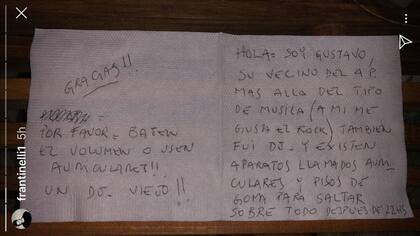 HOLA= SOY GUSTAVO,
SU VECINO DEL AP.
MAS ALLA DEL TIPO
DE MUSICA (A MI ME
GUSTA EL ROCK) TAMBIEN
FUI DJ- Y EXISTEN
APARATOS LLAMADOS AURI
CULARES Y PISOS DE
GOMA PARA SALTAR
SOBRE TODO DESPUES DE 22.45
POR FAVOR= BAJEN
EL VOLUMEN O USEN
AURICULARES!!
UN DJ VIEJO!!
GRACIAS!!
frantinelli1 5h